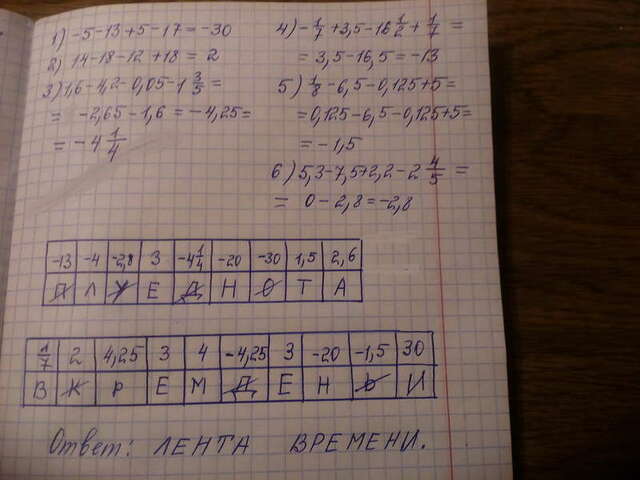 1) -5-13+5-17 = -30
2) 14-18-12+18 = 2
3) 1,6-4,2-0,05-1 3/5 =
= -2,65-1,6 = -4,25 =
= -4 1/4
4) -1/7+3,5-16 1/2+1/7 =
= 3,5-16,5 = -13
5) 1/8-6,5-0,125+5 =
= 0,125-6,5-0,125+5 =
= -1,5
6) 5,3-7,5+2,2-2 4/5 =
= 0-2,8 = -2,8
-13 -4 -2,8 3 -4 1/4 -20 -30 1,5 2,6
П Л У Е Д Н О Т А
1/7 2 4,25 3 4 -4,25 3 -20 -1,5 30
В К Р Е М Д Е Н Ь И
Ответ: ЛЕНТА ВРЕМЕНИ.